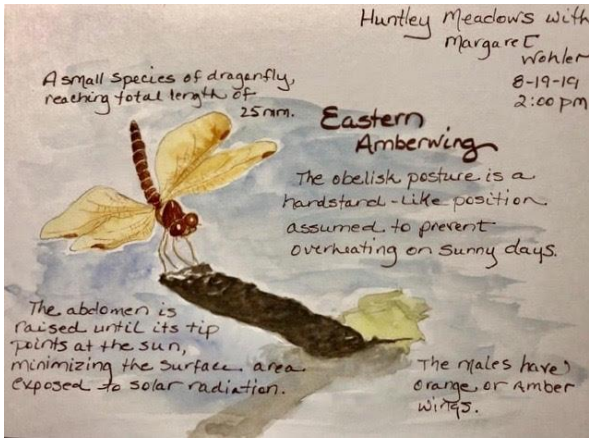 Huntley Meadows with
Margaret
Wohler
8-19-19
2:00 pm
A small species of dragonfly,
reaching total length of
25mm.
Eastern
Amberwing
The obelisk posture is a
handstand-like position
assumed to prevent
overheating on sunny days.
The abdomen is
raised until its tip
points at the sun,
minimizing the surface area
exposed to solar radiation.
The males have
orange or amber
wings.